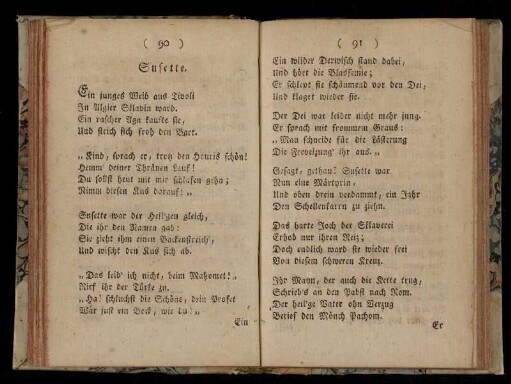 ( 90 )
Susette.
Ein junges Weib aus Tivoli
In Algier Sklavin ward.
Ein rascher Aga kaufte sie,
Und strich sich froh den Bart.
„Kind, sprach er, trotz den Houris schön!
Hemm' deiner Thränen Lauf!
Du sollst heut mit mir schlafen gehn;
Nimm diesen Kus darauf!„
Susette war der Heiligen gleich,
Die ihr den Namen gab:
Sie zieht ihm einen Backenstreich,
Und wischt den Kus sich ab.
„Das leid' ich nicht, beim Mahomet!„
Rief ihr der Türke zu.
„Ha! schluchst die Schöne, dein Profet
War just ein Bock, wie du!„
Ein
( 91 )
Ein wilder Derwisch stand dabei,
Und hört die Blasfemie;
Er schlept sie schäumend vor den Dei,
Und klaget wieder sie.
Der Dei war leider nicht mehr jung.
Er sprach mit frommem Graus:
„Man schneide für die Lästerung
Die ihr aus.„
Gesagt, gethan! Susette war
Nun eine Märtyrin,
Und oben drein verdammt, ein Jahr
Den Schellenkarrn zu ziehn.
Das harte Joch der Sklaverei
Erhob nur ihren Reiz;
Doch endlich ward sie wieder frei
Von diesem schweren Kreuz.
Ihr Mann, der auch die Kette trug,
Schrieb's an den Pabst nach Rom.
Der heil'ge Vater ohn Verzug
Berief den Mönch Pachom.
Er